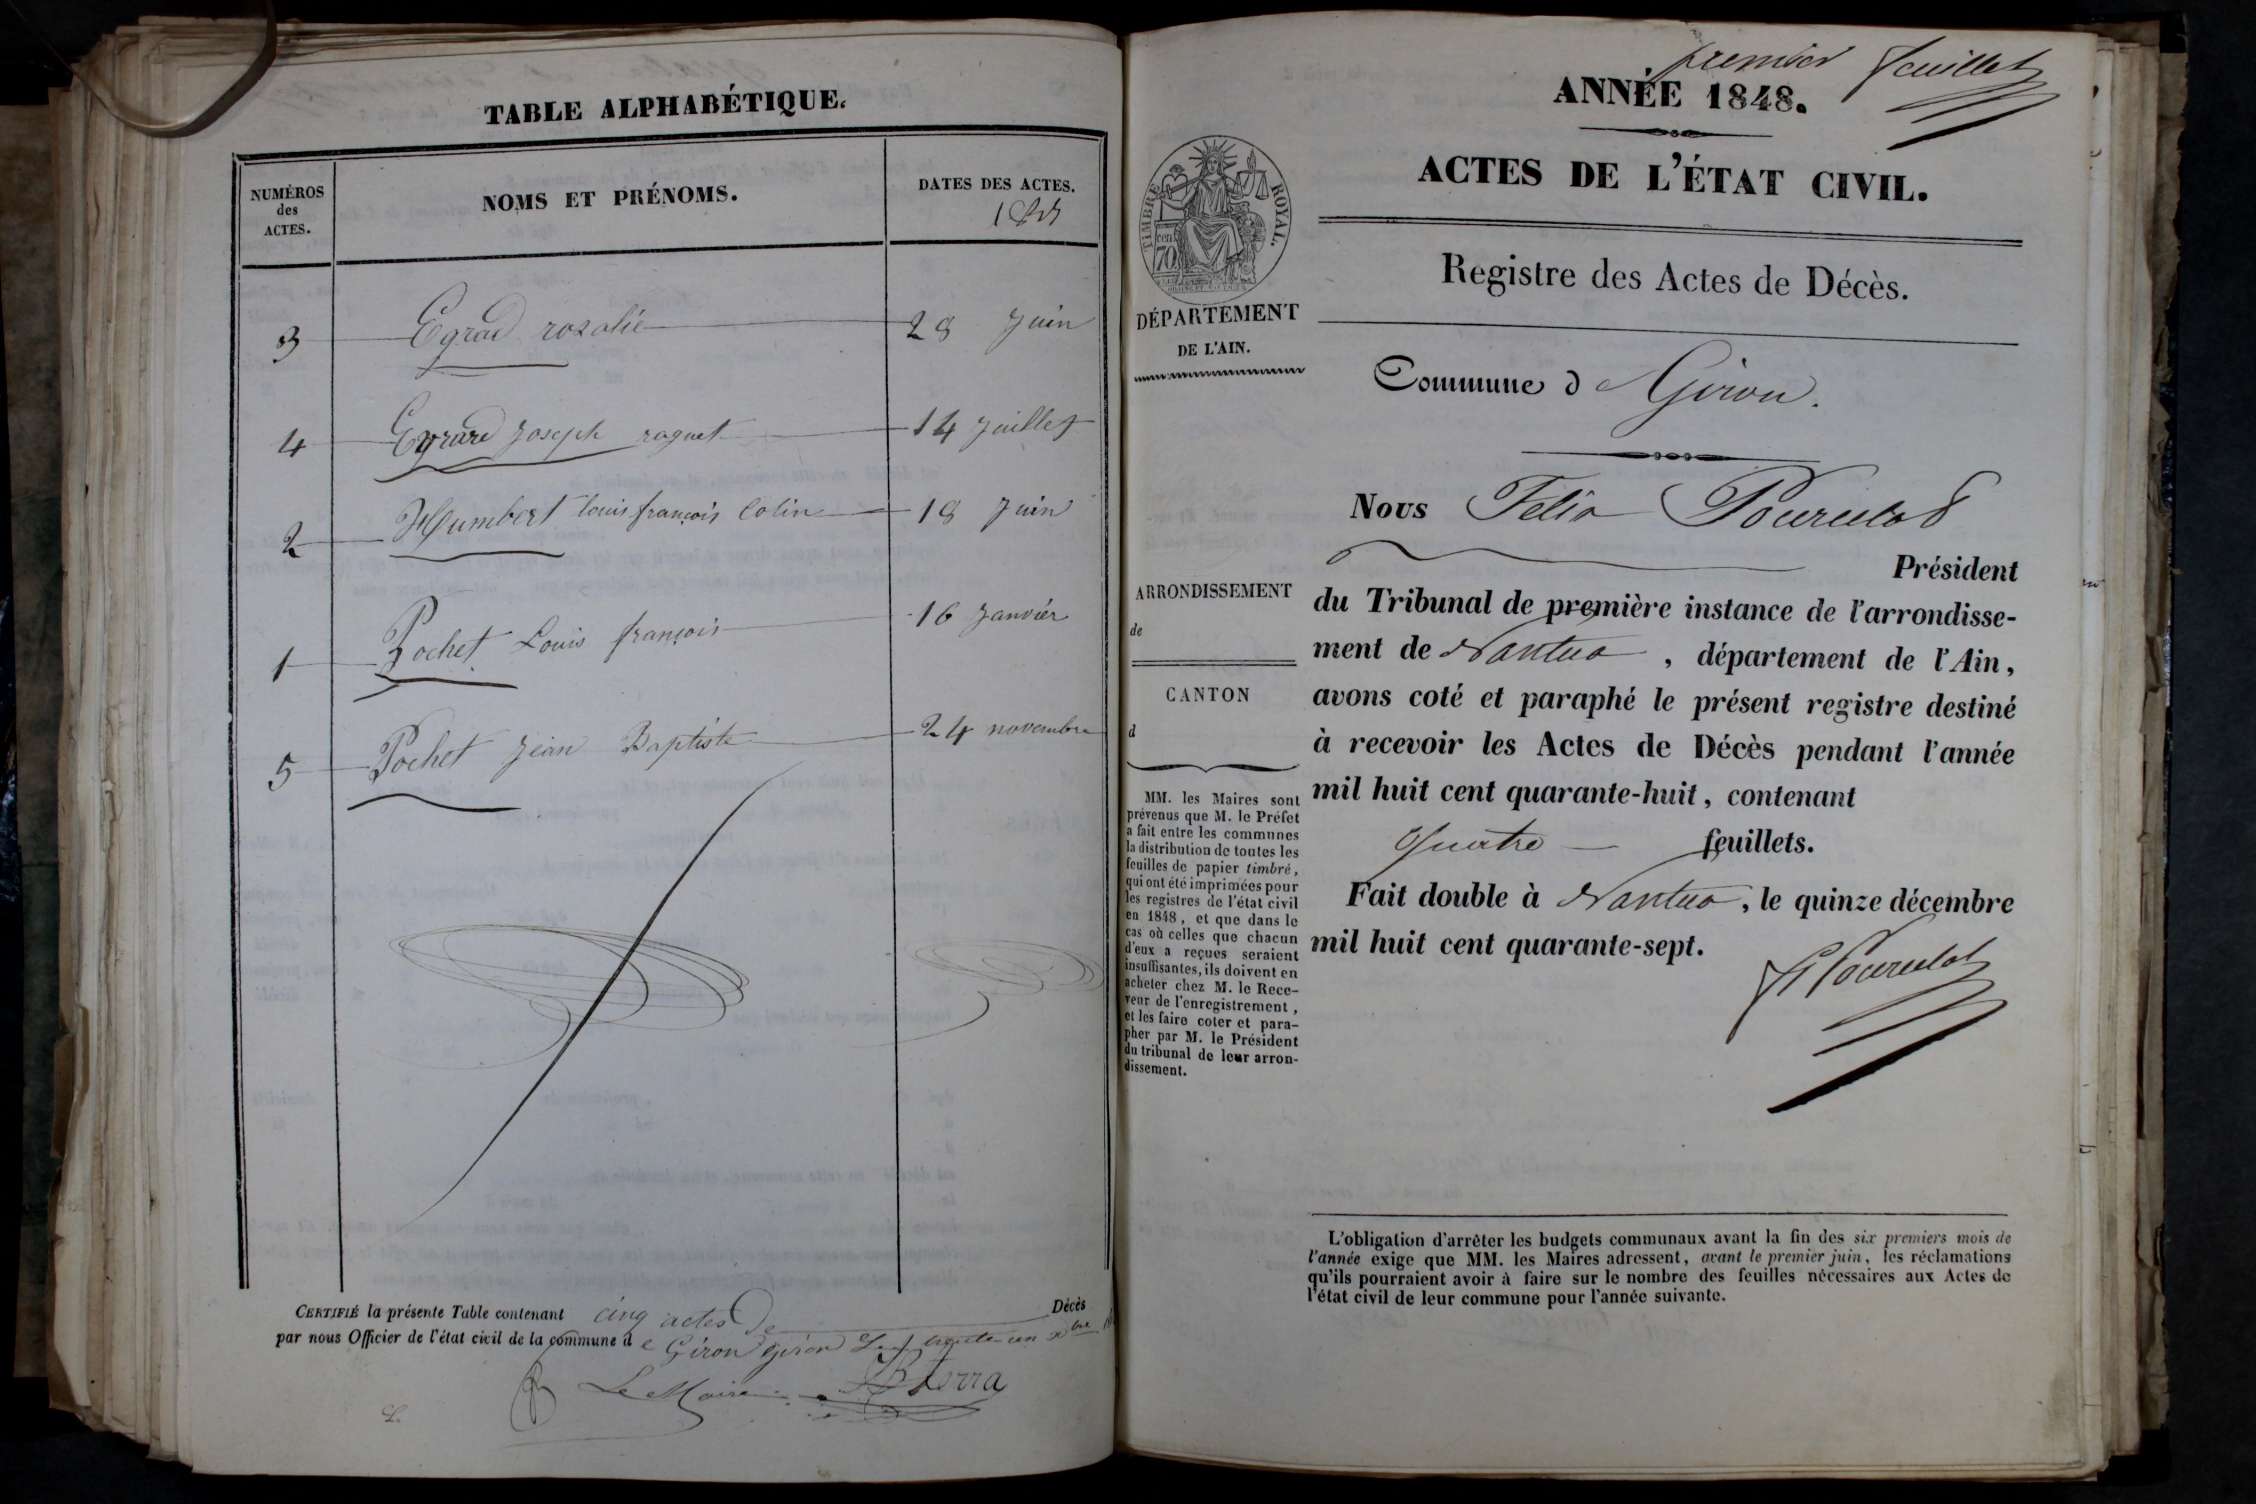 TABLE ALPHABÉTIQUE.
NUMÉROS
des
ACTES.
NOMS ET PRÉNOMS.
DATES DES ACTES.
3 Egrad rozalie 28 Juin
4 Joseph roguet 14 Juillet
2 Humbert Louis françois Colin 18 Juin
1 Pochet Louis françois 16 Janvier
5 Pochet Jean Baptiste 24 novembre
CERTIFIÉ la présente Table contenant cinq actes De Décès
par nous Officier de l'état civil de la commune de Giron Giron trente un
Le Maire
premier feuillet
ANNÉE 1848.
ACTES DE L'ÉTAT CIVIL.
TIMBRE ROYAL.
cen.
70
DÉPARTEMENT
DE L'AIN.
ARRONDISSEMENT
de
CANTON
d
MM. les Maires sont
prévenus que M. le Préfet
a fait entre les communes
la distribution de toutes les
feuilles de papier timbré,
qui ont été imprimées pour
les registres de l'état civil
en 1848, et que dans le
cas où celles que chacun
d'eux a reçues seraient
insuffisantes, ils doivent en
acheter chez M. le Rece-
veur de l'enregistrement,
et les faire coter et para-
pher par M. le Président
du tribunal de leur arron-
dissement.
Registre des Actes de Décès.
Commune d Giron.
Nous Félix Pourcelot
Président
du Tribunal de première instance de l'arrondisse-
ment de Nantua, département de l'Ain,
avons coté et paraphé le présent registre destiné
à recevoir les Actes de Décès pendant l'année
mil huit cent quarante-huit, contenant
quatre feuillets.
Fait double à Nantua, le quinze décembre
mil huit cent quarante-sept.
Pourcelot
L'obligation d'arrêter les budgets communaux avant la fin des six premiers mois de
l'année exige que MM. les Maires adressent, avant le premier juin, les réclamations
qu'ils pourraient avoir à faire sur le nombre des feuilles nécessaires aux Actes de
l'état civil de leur commune pour l'année suivante.